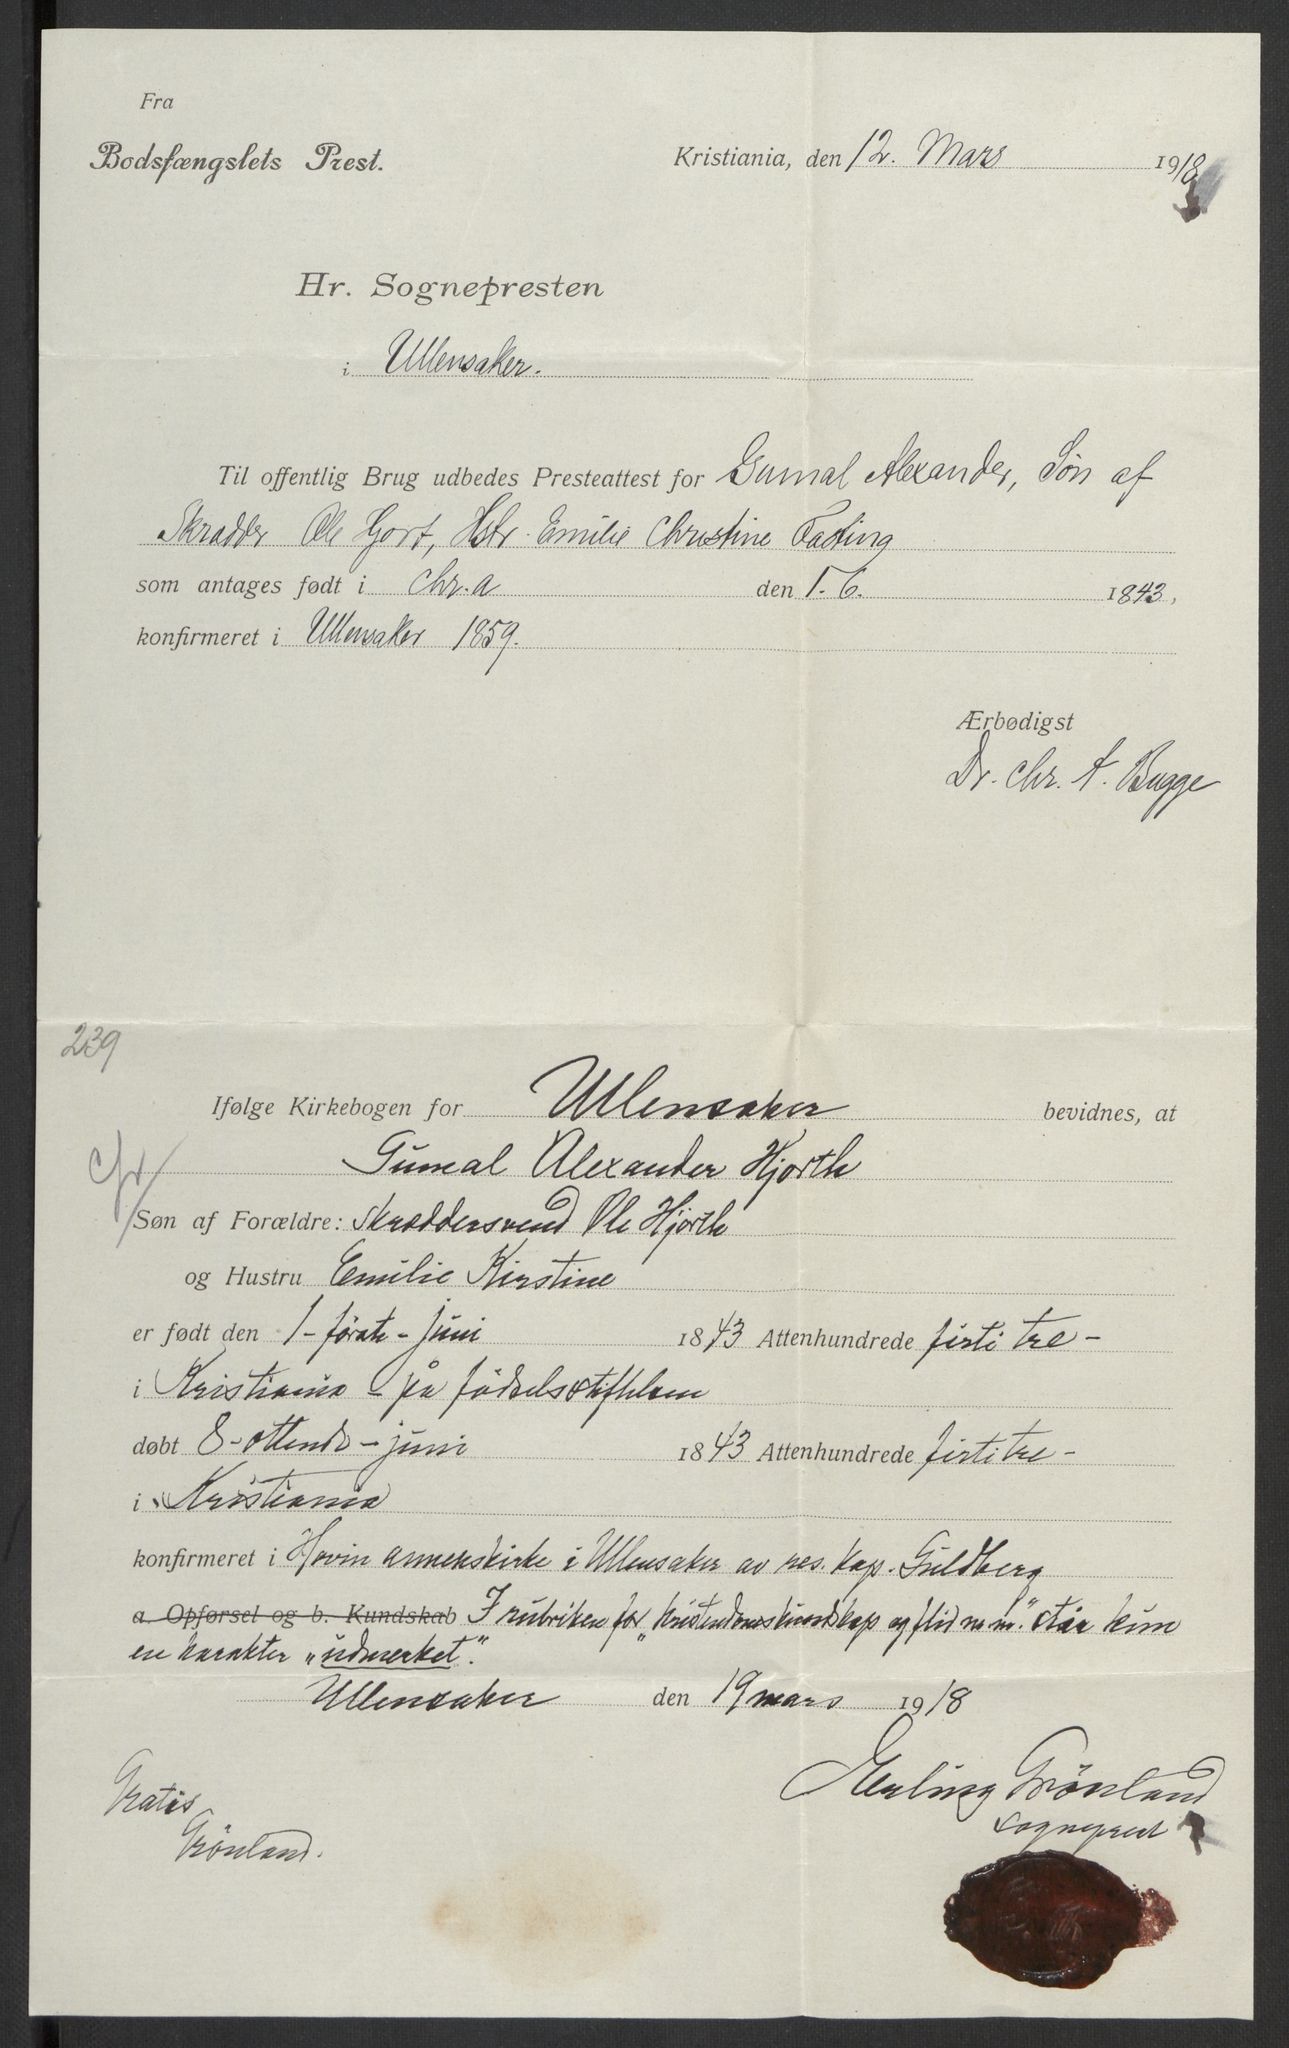 Fra
Bodsfængslets Prest.
Kristiania, den 12. Mars 1918
Hr. Sognepresten
i Ullensaker.
Til offentlig Brug udbedes Presteattest for Gumal Alexander, Søn af
Skradder Ole Hjort, Hstr. Emilie Christine Fasting
som antages født i Chr.a den 1. 6. 1843,
konfirmeret i Ullensaker 1859.
Ærbødigst
Dr. Chr. A. Bugge
239
Ifølge Kirkebogen for Ullensaker bevidnes, at
Gumal Alexander Hjorth
Søn af Forældre: Skræddersvend Ole Hjorth
og Hustru Emilie Kirstine
er født den 1 - første - juni 1843 Attenhundrede firti tre -
i Kristiania - på fødselsstiftelsen
døbt 8 - ottende - juni 1843 Attenhundrede firti tre -
i Kristiania
konfirmeret i Hovin annekskirke i Ullensaker av res. kap. Guldberg
a. Opførsel og b. Kundskab I rubriken for „kristendomskundskap og flid m. m." står kun
en karakter „udmerket".
Ullensaker den 19 mars 1918
Erling Grönland
sogneprest
Gratis
Grönland.